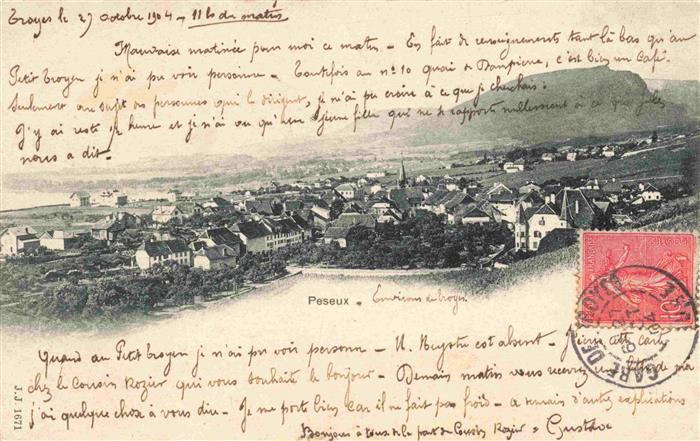 Troyes le 27 octobre 1904 - 11 h du matin
Mauvaise matinée pour moi ce matin - En fait de renseignements tant là bas qu'au
Petit Troyen je n'ai pu voir personne - Toutefois au n° 10 Quai de Dampierre, c'est bien un Café.
Seulement au sujet des personnes qui le dirigent, je n'ai pu croire à ce que je cherchais.
J'y ai resté heure et je n'ai vu qu'une jeune fille qui ne se rapporte nullement à ce que Jules
nous a dit.
Peseux - Environs de Troyes
Quand au Petit Troyen je n'ai pu voir personne - M. est absent - J'écris cette carte
chez le Cousin Rozier qui vous souhaite le bonjour - Demain matin vous recevrez une lettre de moi
j'ai quelque chose à vous dire - Je me porte bien car il ne fait pas froid - à demain d'autres explications
Bonjour à tous de la part de Cousin Rozier - Gustave
J.J. 1671
10
GARE DE TROYES